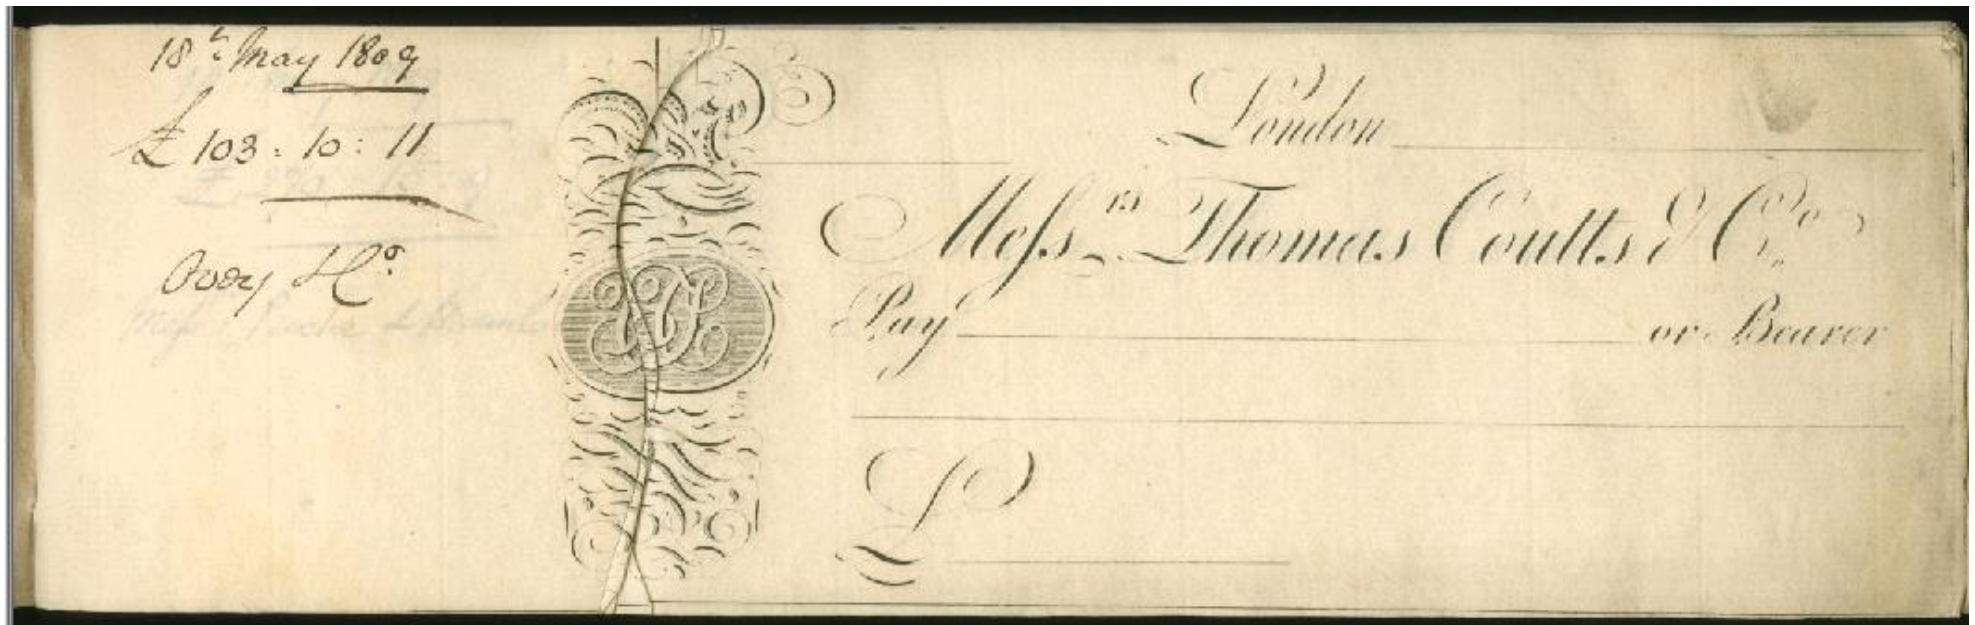 18th May 1809
£ 103 : 10 : 11
No
London
Messrs Thomas Coutts & Co.
Pay or Bearer
£